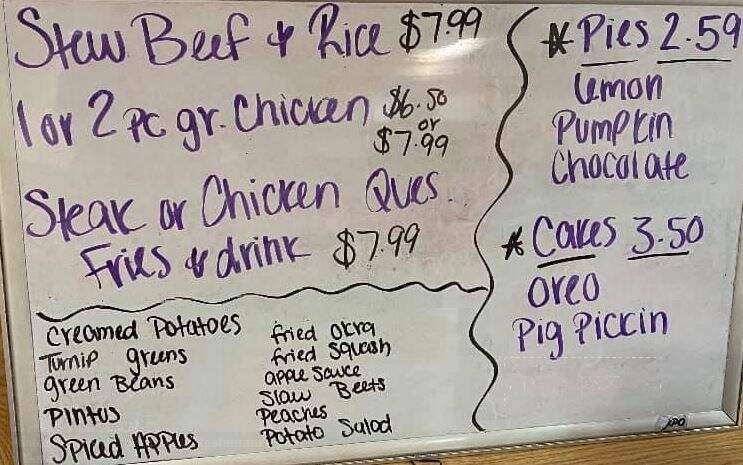 Stew Beef & Rice $7.99
1 or 2 pc gr. Chicken $6.50
or
$7.99
Steak or Chicken Ques.
Fries & drink $7.99
Creamed Potatoes
Turnip greens
green Beans
Pintos
Spiced Apples
fried okra
fried Squash
apple Sauce
Slaw Beets
Peaches
Potato Salad
* Pies 2.59
Lemon
Pumpkin
Chocolate
* Cakes 3.50
Oreo
Pig Piccin